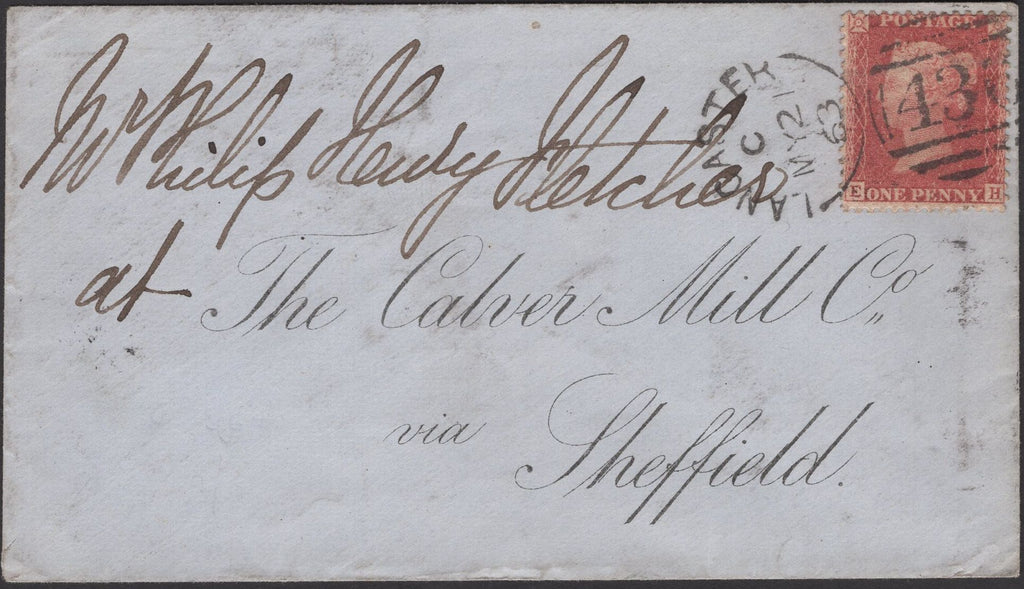 POSTAGE
LANCASTER
C
MY 21
63
43
E ONE PENNY H
Mr Philip Henry Fletcher
at The Calver Mill Co,,
via Sheffield.